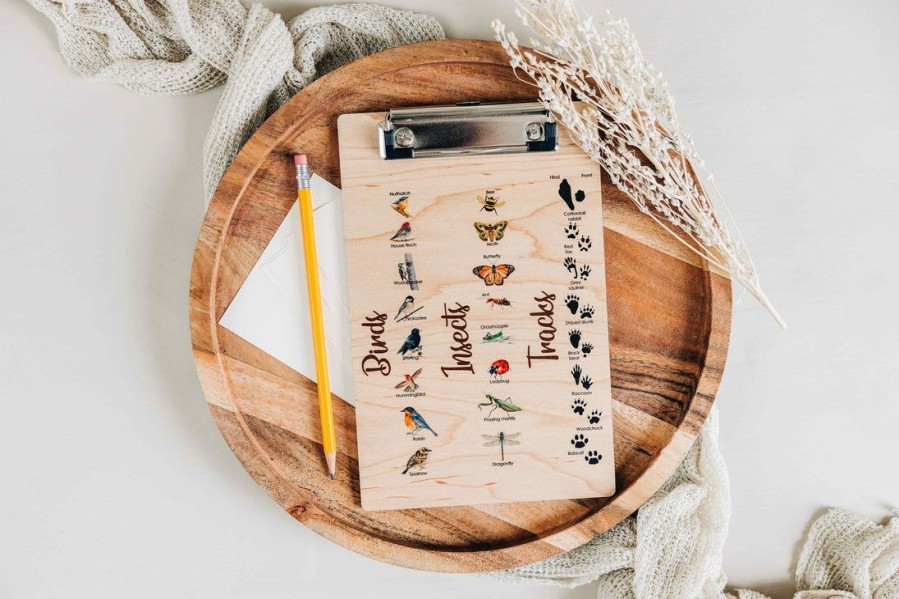 Birds
Nuthatch
House finch
Woodpecker
Chickadee
Starling
Hummingbird
Robin
Sparrow
Insects
Bee
Moth
Butterfly
Ant
Grasshopper
Ladybug
Praying mantis
Dragonfly
Tracks
Hind Front
Cottontail
rabbit
Red
fox
Grey
squirrel
Striped skunk
Black
bear
Raccoon
Woodchuck
Bobcat